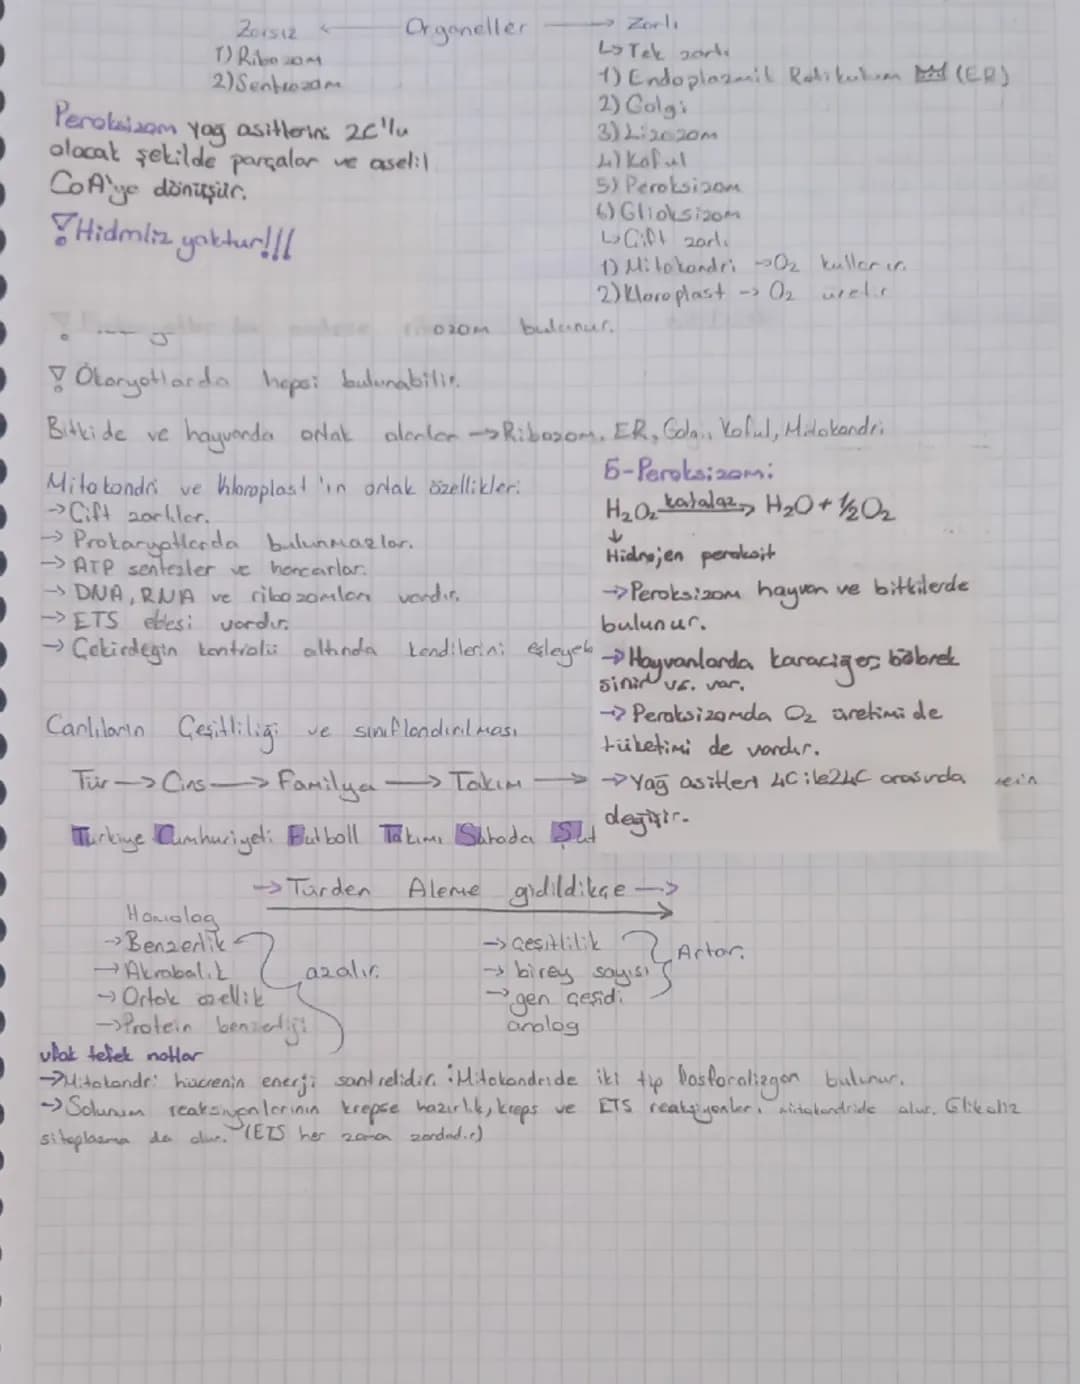 Zarsız ← Organeller → Zarlı
1) Ribozom
2) Sentrozom
↳ Tek zarlı
1) Endoplazmik Retikulum (ER)
2) Golgi
3) Lizozom
4) Koful
5) Peroksizom
6) Glioksizom
↳ Çift zarlı
1) Mitokondri → O2 kullanır.
2) Kloroplast → O2 üretir
Peroksizom yağ asitlerini 2C'lu
olacak şekilde parçalar ve asetil
CoA'ya dönüşür.
! Hidroliz yoktur!!!
ozom bulunur.
! Ökaryotlarda hepsi bulunabilir.
Bitkide ve hayvanda ortak olanlar → Ribozom, ER, Golgi, Koful, Mitokondri
Mitokondri ve kloroplast'ın ortak özellikleri:
→ Çift zarlılar.
→ Prokaryotlarda bulunmazlar.
→ ATP sentezler ve harcarlar.
→ DNA, RNA ve ribozomları vardır.
→ ETS ebesi vardır.
→ Çekirdeğin kontrolü altında kendilerini eşleyeb
5-Peroksizom:
H2O2 katalaz→ H2O + ½O2
↓
Hidrojen peroksit
→ Peroksizom hayvan ve bitkilerde
bulunur.
→ Hayvanlarda karaciğer, böbrek
sinir vs. var.
→ Peroksizomda O2 üretimi de
tüketimi de vardır.
→ Yağ asitleri 4C ile 24C arasında
değişir.
Canlıların Çeşitliliği ve sınıflandırılması
Tür → Cins → Familya → Takım →
Türkiye Cumhuriyeti Futboll Takımı Sahada Şut
→ Türden Aleme gidildikçe →
Homolog
→ Benzerlik
→ Akrabalık
→ Ortak özellik
→ Protein benzerliği
azalır.
→ Çeşitlilik
→ birey sayısı
→ gen çeşidi
analog
Artar.
ufak tefek notlar
→ Mitokondri hücrenin enerji santralidir. : Mitokondride iki tip fosforalizyon bulunur.
→ Solunum reaksiyonlarının krepse hazırlık, kreps ve ETS reaksiyonları mitokondride olur. Glikoliz
sitoplazma da olur. (ETS her zaman zardadır)